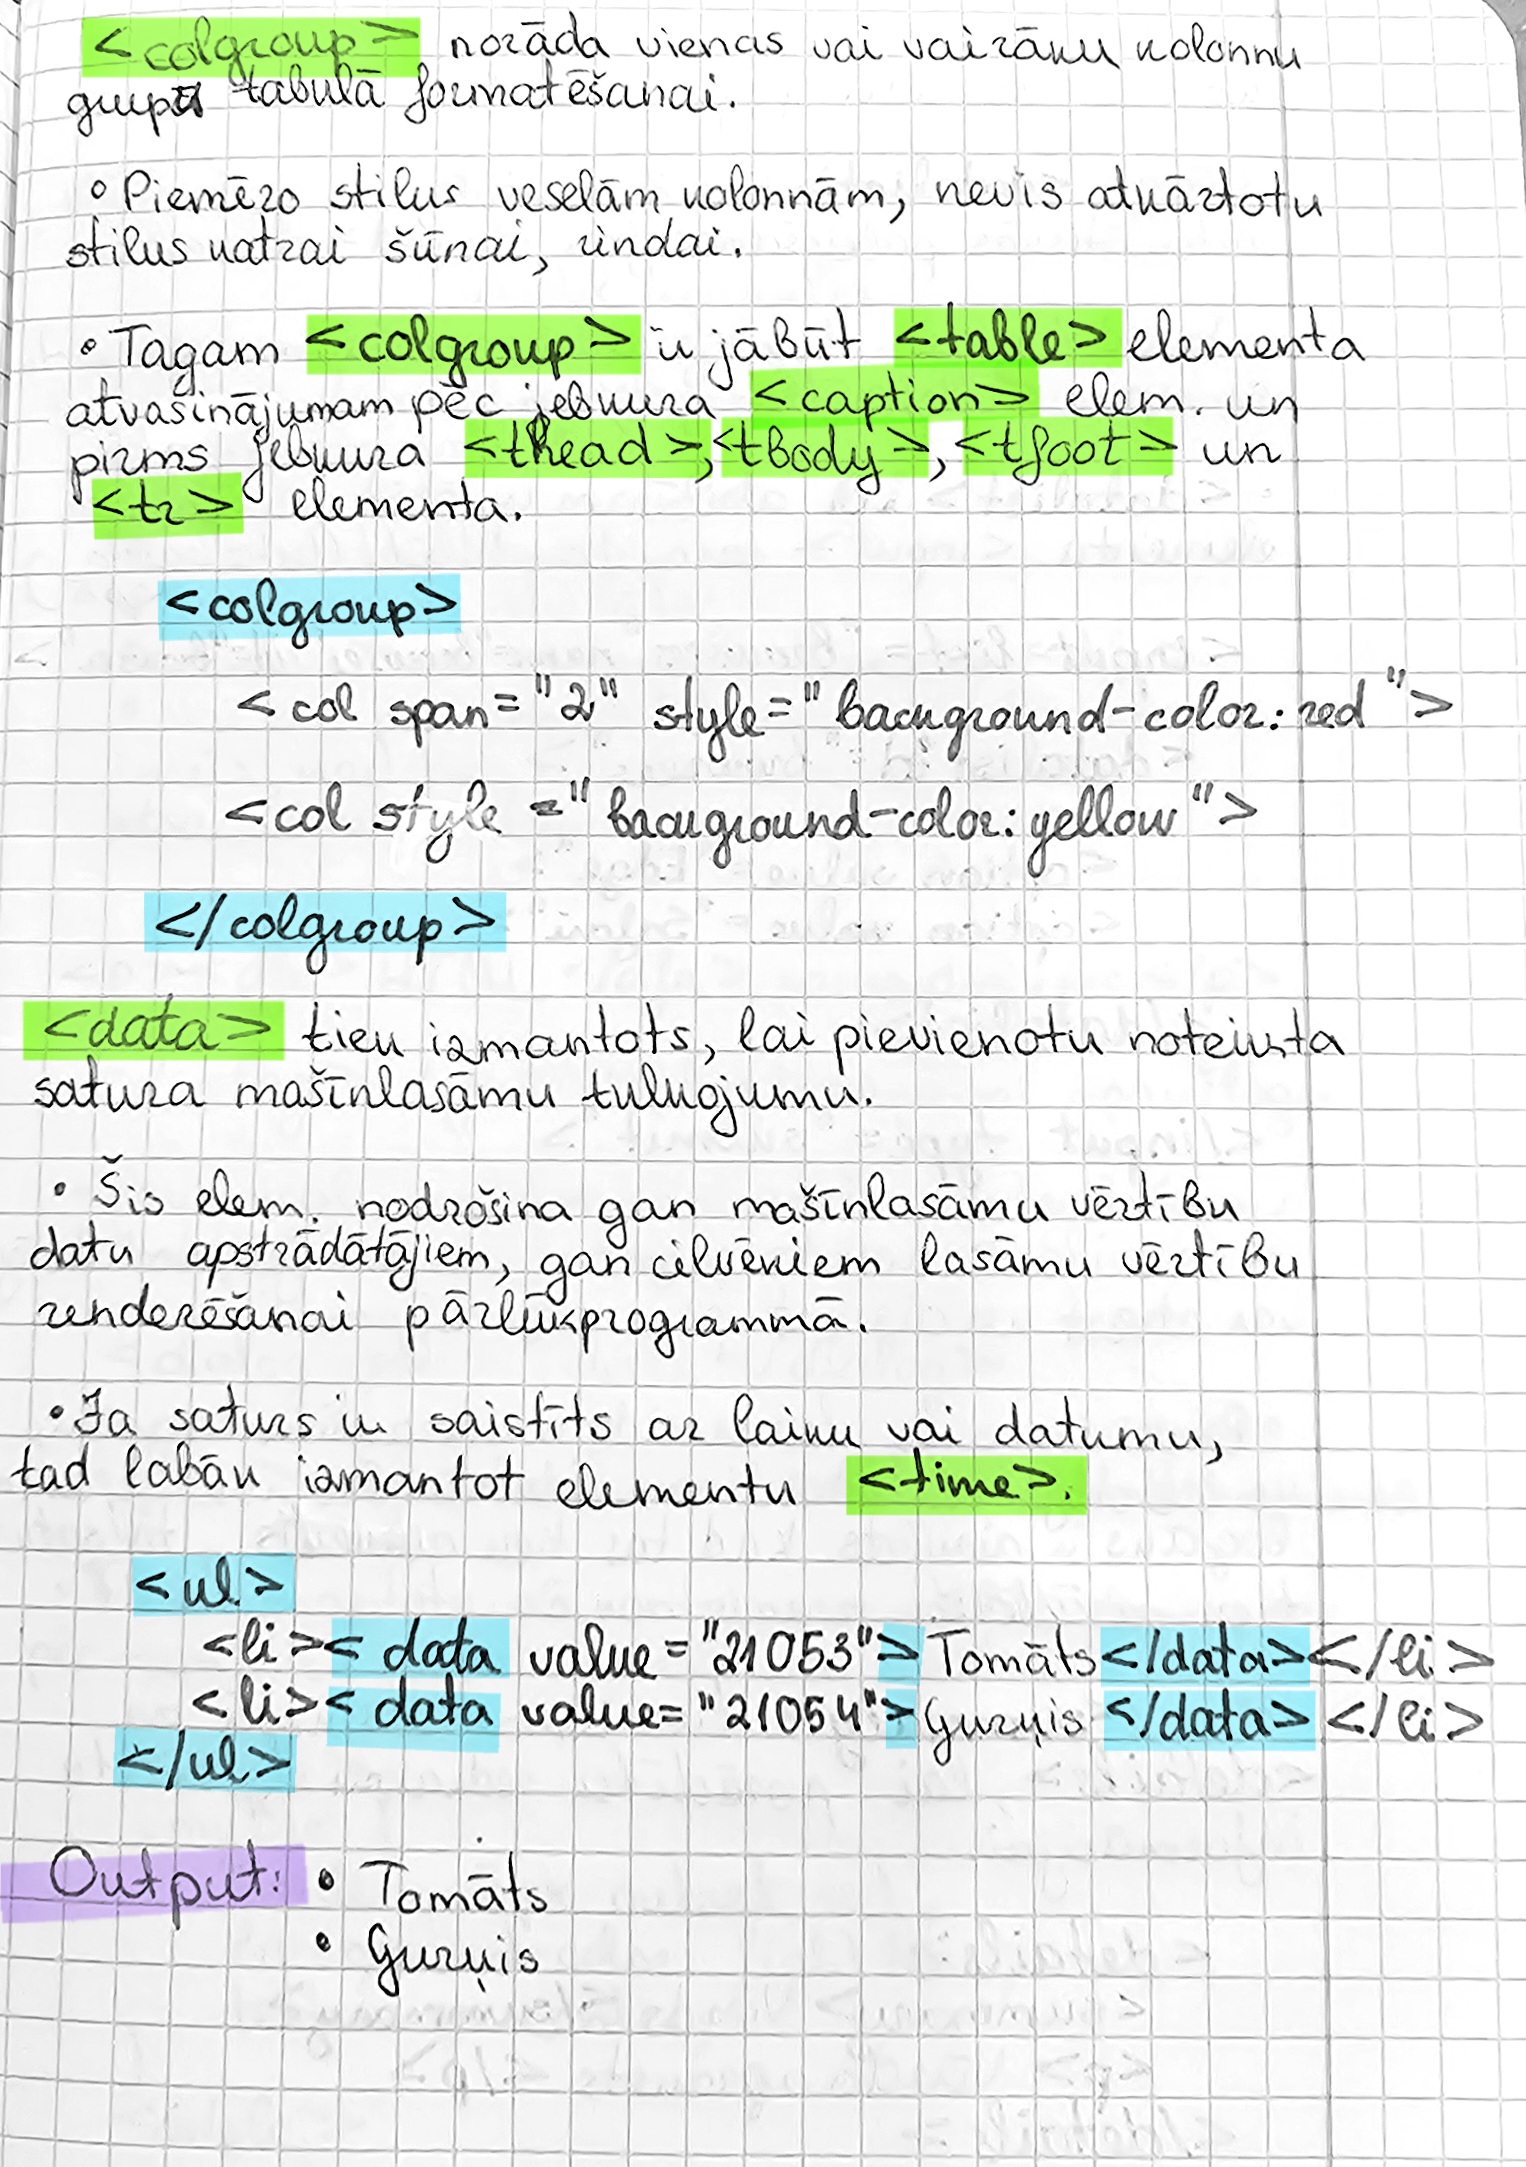 <colgroup> norāda vienas vai vairāku kolonnu
grupu tabulā formatēšanai.
• Piemēro stilus veselām kolonnām, nevis atkārtotu
stilus katrai šūnai, rindai.
• Tagam <colgroup> ir jābūt <table> elementa
atvasinājumam pēc jebkura <caption> elem. un
pirms jebkura <thead>, <tbody>, <tfoot> un
<tr> elementa.
<colgroup>
<col span="2" style="background-color:red">
<col style="background-color:yellow">
</colgroup>
<data> tiek izmantots, lai pievienotu noteikta
satura mašīnlasāmu tulkojumu.
• Šis elem. nodrošina gan mašīnlasāmu vērtību
datu apstrādātājiem, gan cilvēkiem lasāmu vērtību
renderēšanai pārlūkprogrammā.
• Ja saturs ir saistīts ar laiku vai datumu,
tad labāk izmantot elementu <time>.
<ul>
<li><data value="21053">Tomāts</data></li>
<li><data value="21054">Gurķis</data></li>
</ul>
Output: • Tomāts
• Gurķis